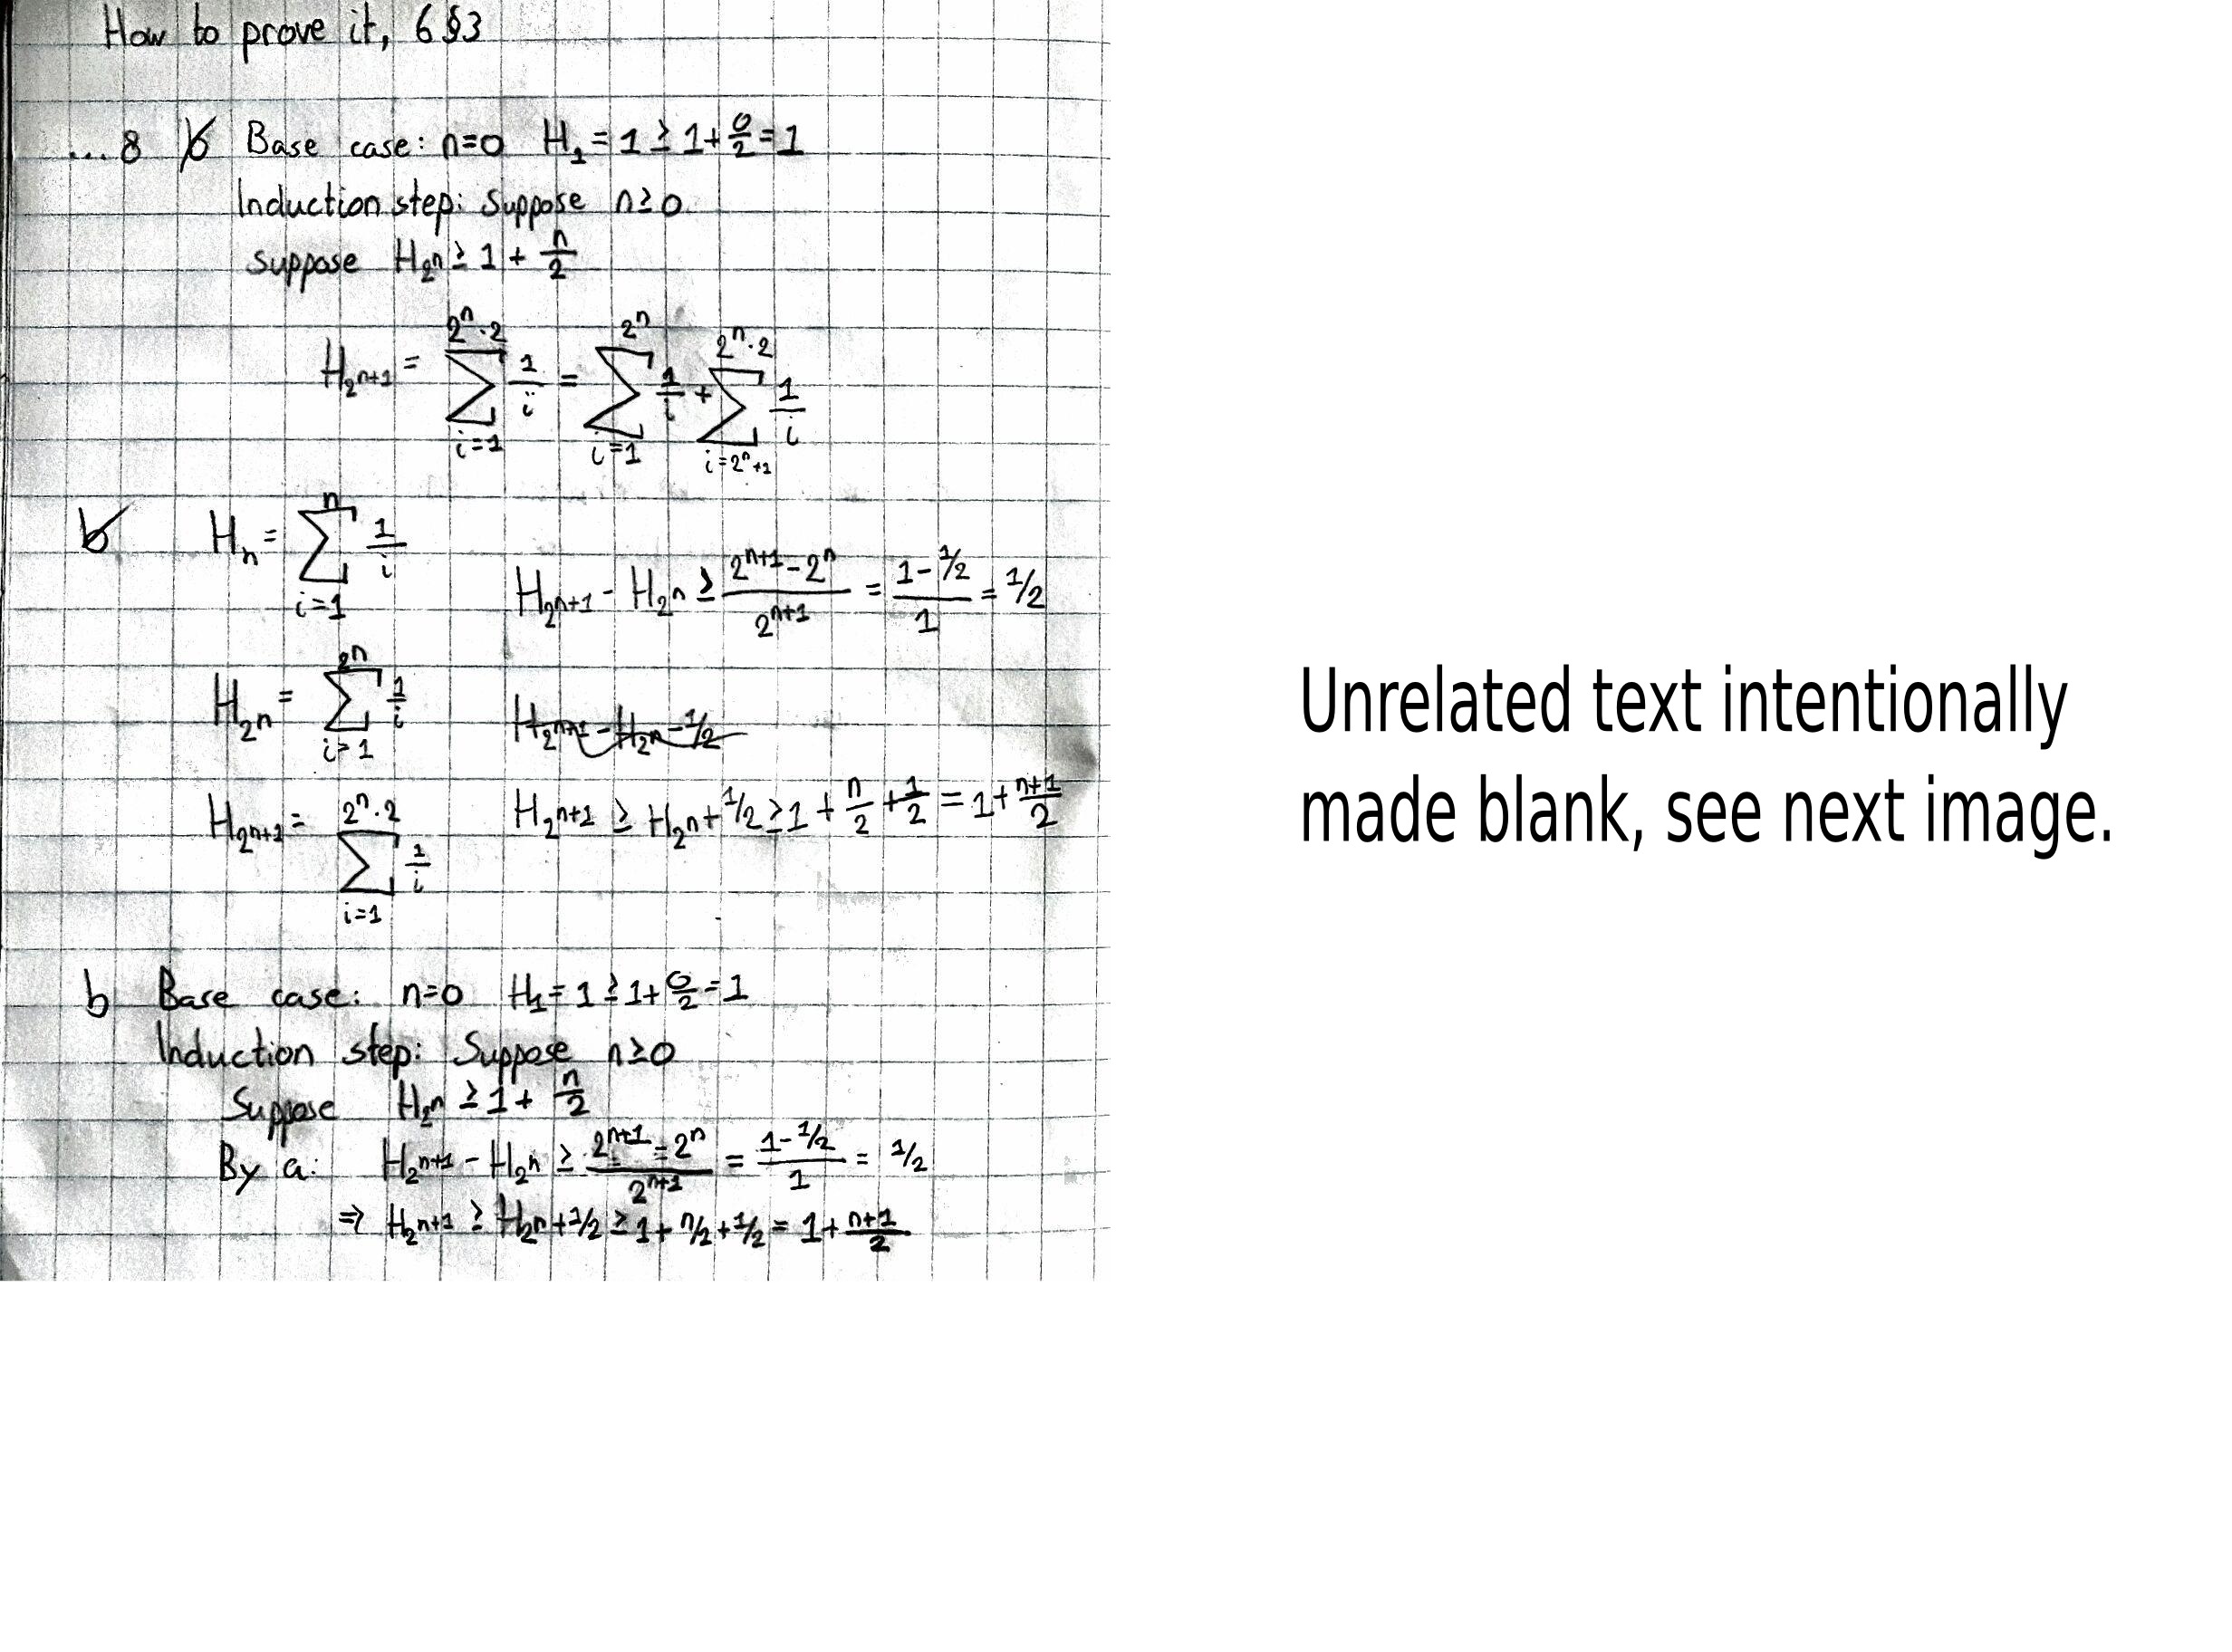 How to prove it, 6 §3
... 8 b Base case: n=0 H₁ = 1 ≥ 1 + 0/2 = 1
Induction step: Suppose n ≥ 0
suppose H_{2^n} ≥ 1 + n/2
H_{2^{n+1}} = ∑_{i=1}^{2^n·2} 1/i = ∑_{i=1}^{2^n} 1/i + ∑_{i=2^n+1}^{2^n·2} 1/i
b H_n = ∑_{i=1}^{n} 1/i
H_{2^{n+1}} - H_{2^n} ≥ (2^{n+1} - 2^n)/2^{n+1} = (1 - 1/2)/1 = 1/2
H_{2^n} = ∑_{i=1}^{2^n} 1/i
H_{2^{n+1}} - H_{2^n} - 1/2
H_{2^{n+1}} = ∑_{i=1}^{2^n·2} 1/i
H_{2^{n+1}} ≥ H_{2^n} + 1/2 ≥ 1 + n/2 + 1/2 = 1 + (n+1)/2
b Base case: n=0 H₁ = 1 ≥ 1 + 0/2 = 1
Induction step: Suppose n ≥ 0
Suppose H_{2^n} ≥ 1 + n/2
By a: H_{2^{n+1}} - H_{2^n} ≥ (2^{n+1} - 2^n)/2^{n+1} = (1 - 1/2)/1 = 1/2
⇒ H_{2^{n+1}} ≥ H_{2^n} + 1/2 ≥ 1 + n/2 + 1/2 = 1 + (n+1)/2
Unrelated text intentionally
made blank, see next image.